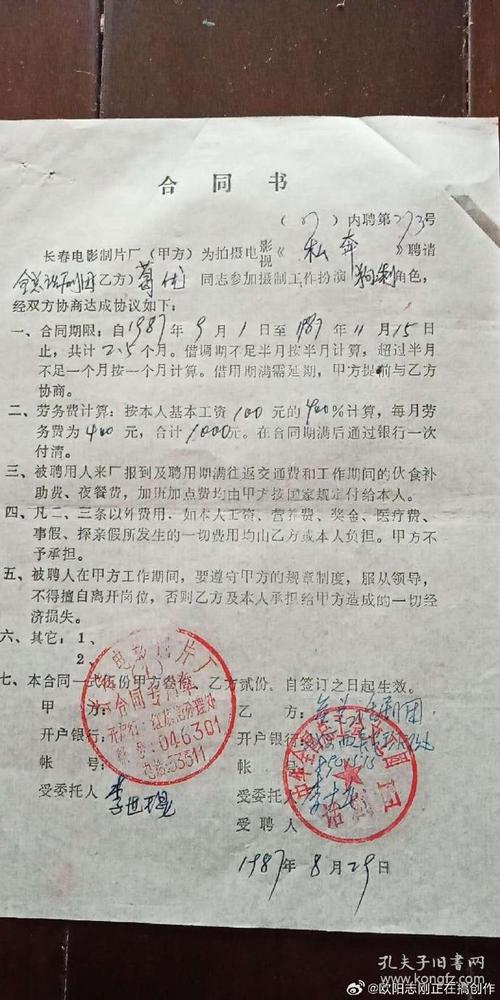 合同书
(87)内聘第273号
长春电影制片厂(甲方)为拍摄电影视《私奔》聘请
全总话剧团乙方)葛优同志参加摄制工作扮演角色,
经双方协商达成协议如下:
一、合同期限:自1987年9月1日至1987年11月15日
止,共计2.5个月。借调期不足半月按半月计算,超过半月
不足一个月按一个月计算。借用期满需延期,甲方提前与乙方
协商。
二、劳务费计算:按本人基本工资100元的400%计算,每月劳
务费为400元,合计1000元。在合同期满后通过银行一次
付清。
三、被聘用人来厂报到及聘用期满往返交通费和工作期间的伙食补
助费、夜餐费,加班加点费均由甲方按国家规定付给本人。
四、凡二、三条以外费用,如本人工资、营养费、奖金、医疗费、
事假、探亲假所发生的一切费用均由乙方或本人负担。甲方不
予承担。
五、被聘人在甲方工作期间,要遵守甲方的规章制度,服从领导,
不得擅自离开岗位,否则乙方及本人承担给甲方造成的一切经
济损失。
六、其它:1、
2、
七、本合同一式伍份甲方叁份,乙方贰份,自签订之日起生效。
甲方:
开户银行:
帐号:
受委托人:李世
电影制片厂
合同专用章
开户行:红旗街办理处
帐号:046301
电话:53311
乙方:全总话剧团
开户银行:
帐号:
受委托人:李
受聘人
话剧团
1987年8月29日
孔夫子旧书网
@欧阳志刚正在搞创作